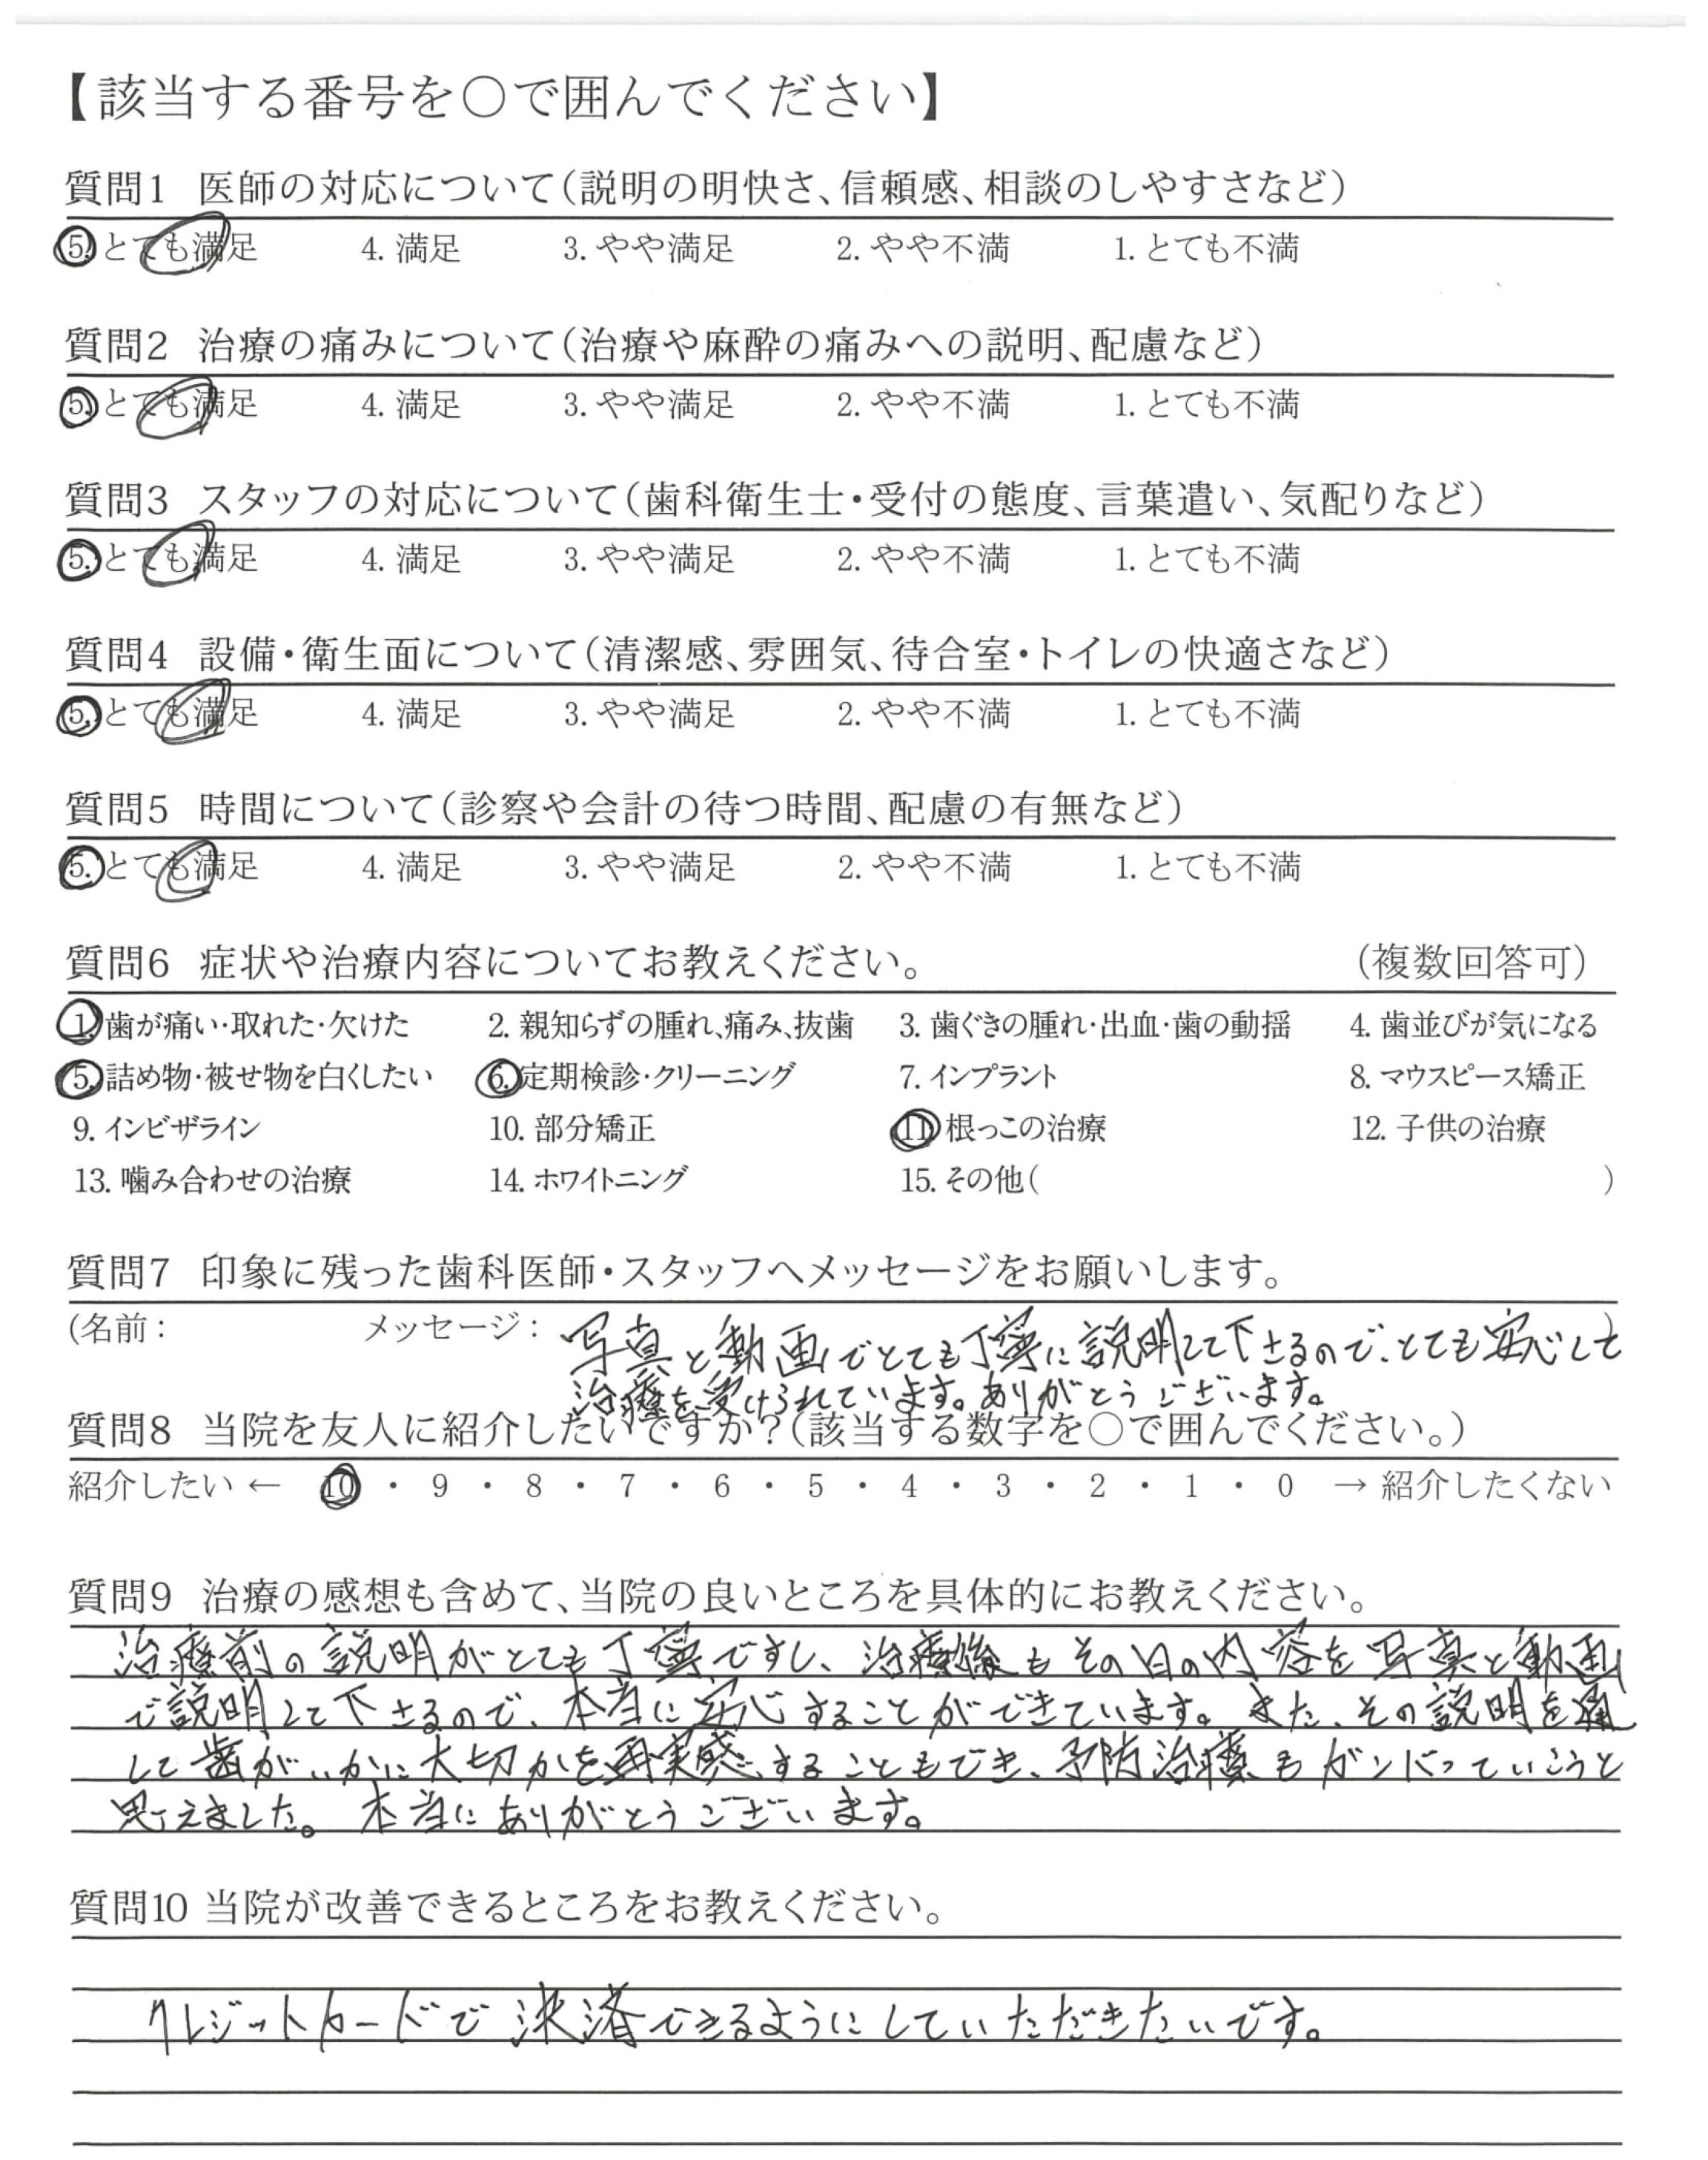 【該当する番号を○で囲んでください】
質問1 医師の対応について(説明の明快さ、信頼感、相談のしやすさなど)
5. とても満足 4. 満足 3. やや満足 2. やや不満 1. とても不満
質問2 治療の痛みについて(治療や麻酔の痛みへの説明、配慮など)
5. とても満足 4. 満足 3. やや満足 2. やや不満 1. とても不満
質問3 スタッフの対応について(歯科衛生士・受付の態度、言葉遣い、気配りなど)
5. とても満足 4. 満足 3. やや満足 2. やや不満 1. とても不満
質問4 設備・衛生面について(清潔感、雰囲気、待合室・トイレの快適さなど)
5. とても満足 4. 満足 3. やや満足 2. やや不満 1. とても不満
質問5 時間について(診察や会計の待つ時間、配慮の有無など)
5. とても満足 4. 満足 3. やや満足 2. やや不満 1. とても不満
質問6 症状や治療内容についてお教えください。 (複数回答可)
1. 歯が痛い・取れた・欠けた 2. 親知らずの腫れ、痛み、抜歯 3. 歯ぐきの腫れ・出血・歯の動揺 4. 歯並びが気になる
5. 詰め物・被せ物を白くしたい 6. 定期検診・クリーニング 7. インプラント 8. マウスピース矯正
9. インビザライン 10. 部分矯正 11. 根っこの治療 12. 子供の治療
13. 噛み合わせの治療 14. ホワイトニング 15. その他( )
質問7 印象に残った歯科医師・スタッフへメッセージをお願いします。
(名前: メッセージ: 写真と動画でとても丁寧に説明して下さるので、とても安心して)
治療を受けられています。ありがとうございます。
質問8 当院を友人に紹介したいですか?(該当する数字を○で囲んでください。)
紹介したい ← 10 ・ 9 ・ 8 ・ 7 ・ 6 ・ 5 ・ 4 ・ 3 ・ 2 ・ 1 ・ 0 → 紹介したくない
質問9 治療の感想も含めて、当院の良いところを具体的にお教えください。
治療前の説明がとても丁寧ですし、治療後もその日の内容を写真と動画
で説明して下さるので、本当に安心することができています。また、その説明を通
して歯がいかに大切かを再実感することもでき、予防治療もガンバっていこうと
思えました。本当にありがとうございます。
質問10 当院が改善できるところをお教えください。
クレジットカードで決済できるようにしていただきたいです。